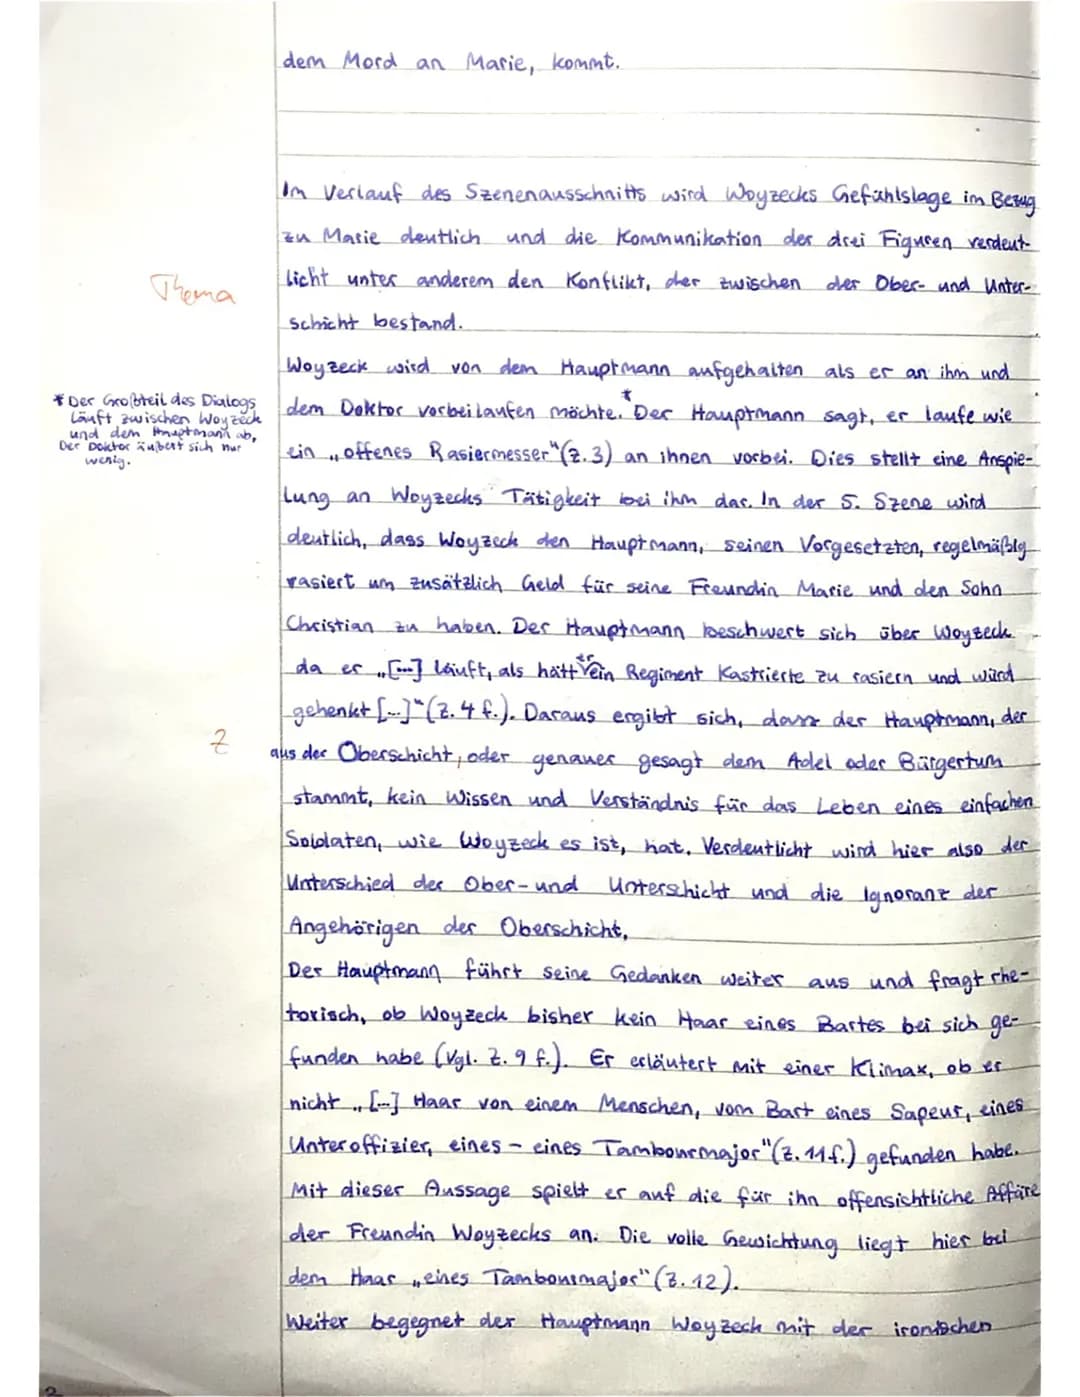 dem Mord an Marie, kommt.
Im Verlauf des Szenenausschnitts wird Woyzecks Gefühlslage im Bezug
zu Marie deutlich und die Kommunikation der drei Figuren verdeut-
Thema
licht unter anderem den Konflikt, der zwischen der Ober- und Unter-
schicht bestand.
Woyzeck wird von dem Hauptmann aufgehalten als er an ihm und
dem Doktor vorbeilaufen möchte.* Der Hauptmann sagt, er laufe wie
* Der Großteil des Dialogs
läuft zwischen Woyzeck
und dem Hauptmann ab,
Der Doktor äußert sich nur
wenig.
ein „offenes Rasiermesser“(Z.3) an ihnen vorbei. Dies stellt eine Anspie-
lung an Woyzecks Tätigkeit bei ihm dar. In der 5. Szene wird
deutlich, dass Woyzeck den Hauptmann, seinen Vorgesetzten, regelmäßig
rasiert um zusätzlich Geld für seine Freundin Marie und den Sohn
Christian zu haben. Der Hauptmann beschwert sich über Woyzeck
da er „[...] läuft, als hätt er ein Regiment Kastrierte zu rasiern und würd
gehenkt [...]“(Z. 4 f.). Daraus ergibt sich, dass der Hauptmann, der
Z
aus der Oberschicht, oder genauer gesagt dem Adel oder Bürgertum
stammt, kein Wissen und Verständnis für das Leben eines einfachen
Soldaten, wie Woyzeck es ist, hat. Verdeutlicht wird hier also der
Unterschied der Ober- und Unterschicht und die Ignoranz der
Angehörigen der Oberschicht.
Der Hauptmann führt seine Gedanken weiter aus und fragt rhe-
torisch, ob Woyzeck bisher kein Haar eines Bartes bei sich ge-
funden habe (Vgl. Z. 9 f.). Er erläutert mit einer Klimax, ob er
nicht „[...] Haar von einem Menschen, vom Bart eines Sapeur, eines
Unteroffizier, eines – eines Tambourmajor“(Z. 11 f.) gefunden habe.
Mit dieser Aussage spielt er auf die für ihn offensichtliche Affäre
der Freundin Woyzecks an. Die volle Gewichtung liegt hier bei
dem Haar „eines Tambourmajor“(Z. 12).
Weiter begegnet der Hauptmann Woyzeck mit der ironischen